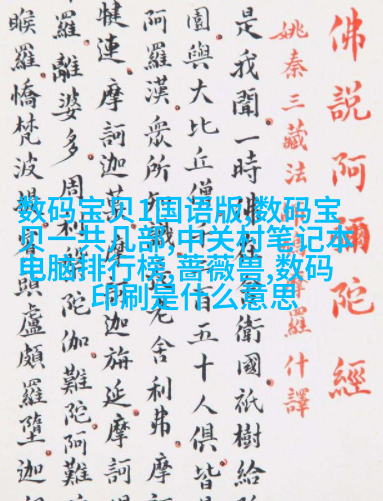 佛說阿彌陀經
姚秦三藏法羅什譯
是我聞一時佛在衛國祇樹給
園與大比丘僧百五十人俱皆
阿羅漢眾所知識老舍利弗摩
犍連摩訶迦葉迦旃延摩訶
羅離婆多周利陀伽難陀阿難
睺羅憍梵波提頭盧頗羅墮迦
数码宝贝1国语版,数码宝
贝一共几部,中关村笔记本
电脑排行榜,蔷薇兽,数码
印刷是什么意思